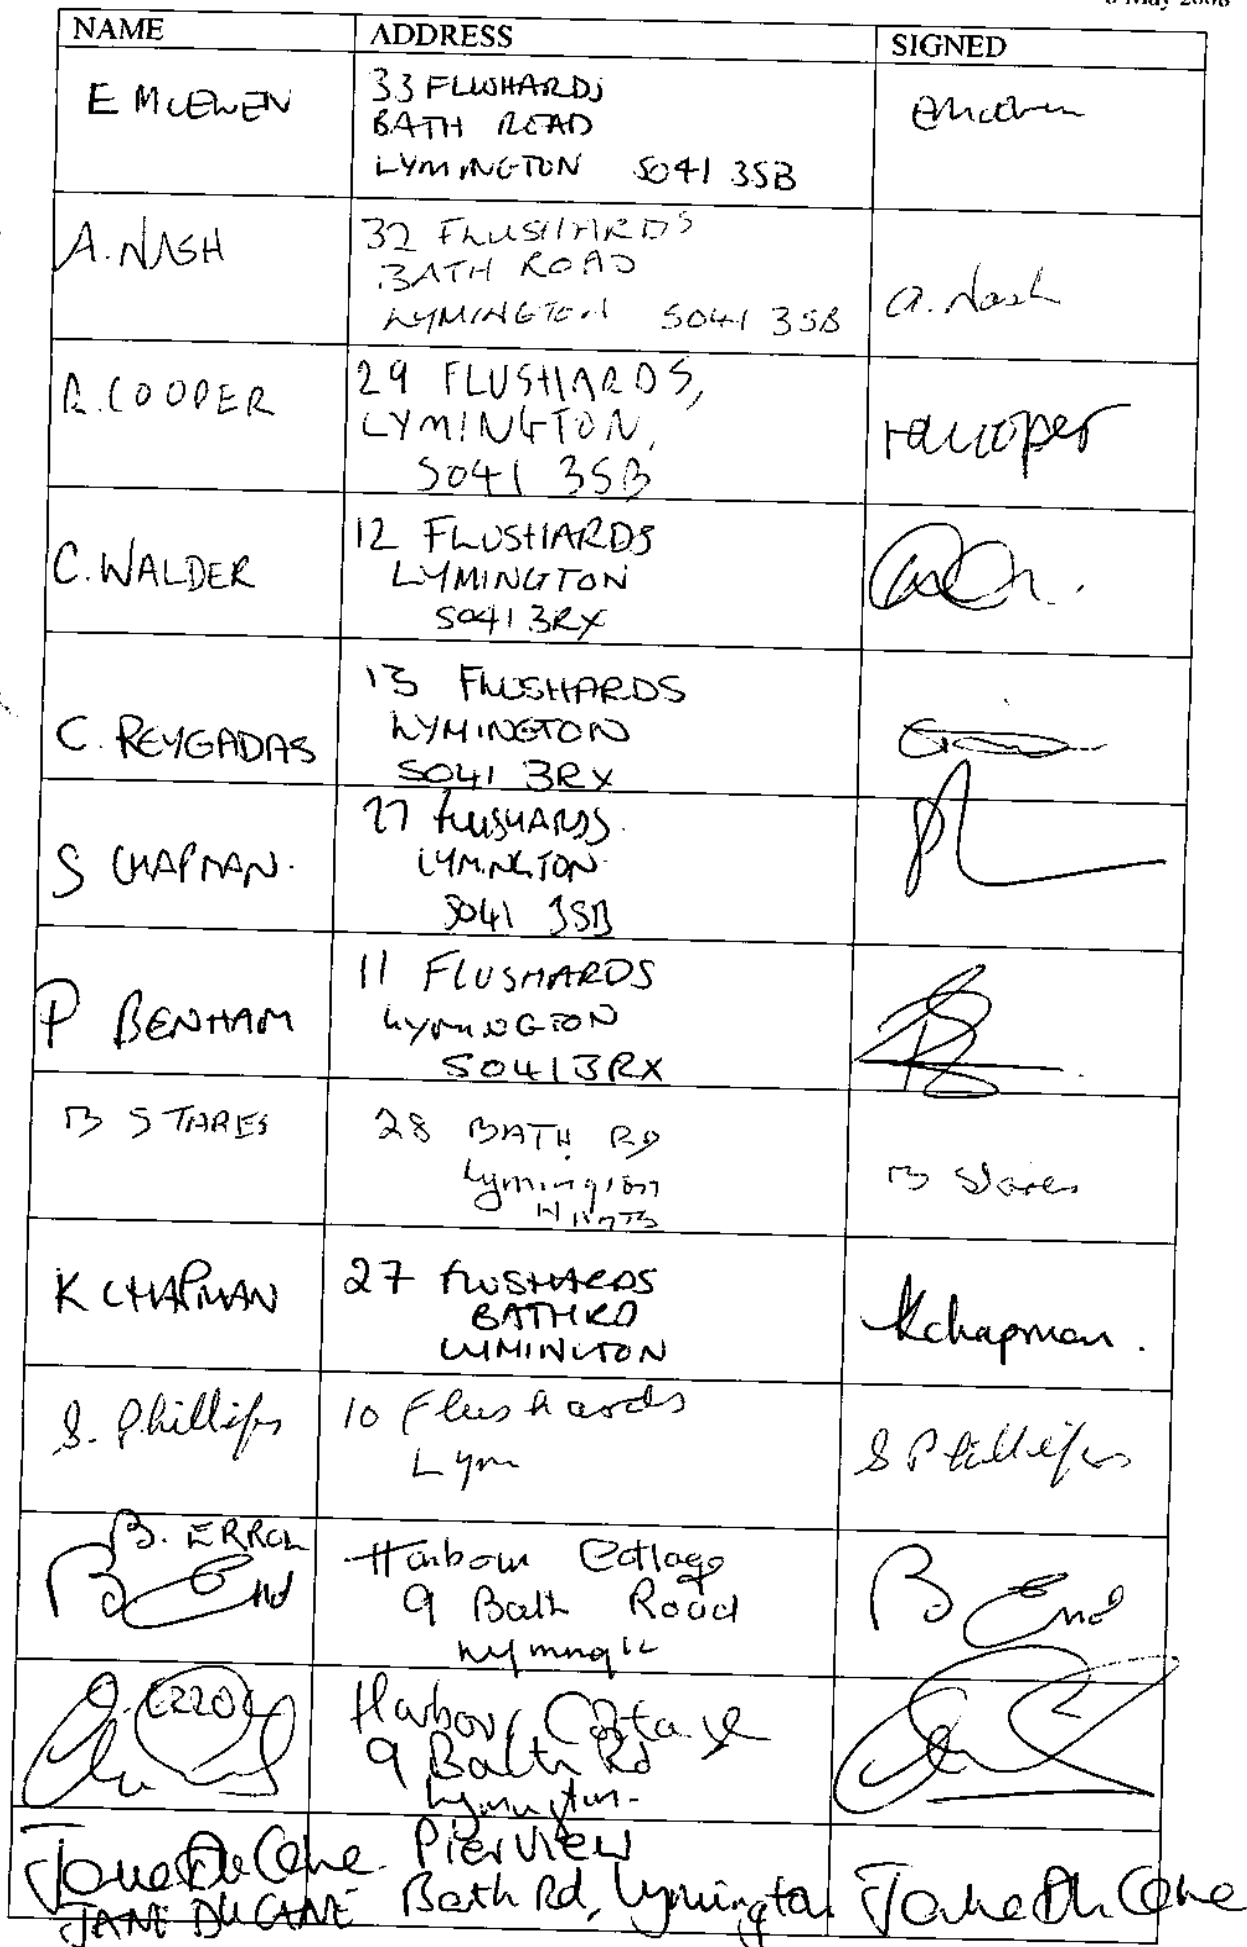 May 2006
NAME ADDRESS SIGNED
E MCEWEN
33 FLUSHARDS
BATH ROAD
LYMINGTON SO41 3SB
A. NASH
32 FLUSHARDS
BATH ROAD
LYMINGTON SO41 3SB
a. Nash
R. COOPER
29 FLUSHARDS,
LYMINGTON,
SO41 3SB
C. WALDER
12 FLUSHARDS
LYMINGTON
SO41 3RX
C. REYGADAS
13 FLUSHARDS
LYMINGTON
SO41 3RX
S CHAPMAN.
27 FLUSHARDS.
LYMINGTON.
SO41 3SB
P BENHAM
11 FLUSHARDS
LYMINGTON
SO41 3RX
B STARES
28 BATH RD
Lymington
HANTS
B Stares
K CHAPMAN
27 FLUSHARDS
BATH RD
LYMINGTON
K Chapman.
S. Phillips
10 Flushards
Lym
S Phillips
B. ERROL
Harbour Cottage
9 Bath Road
Lymington
ERROL
Harbour Cottage
9 Bath Rd
Lymington.
Jane Du Cane
JANE DU CANE
Pierview
Bath Rd, Lymington.
Jane Du Cane